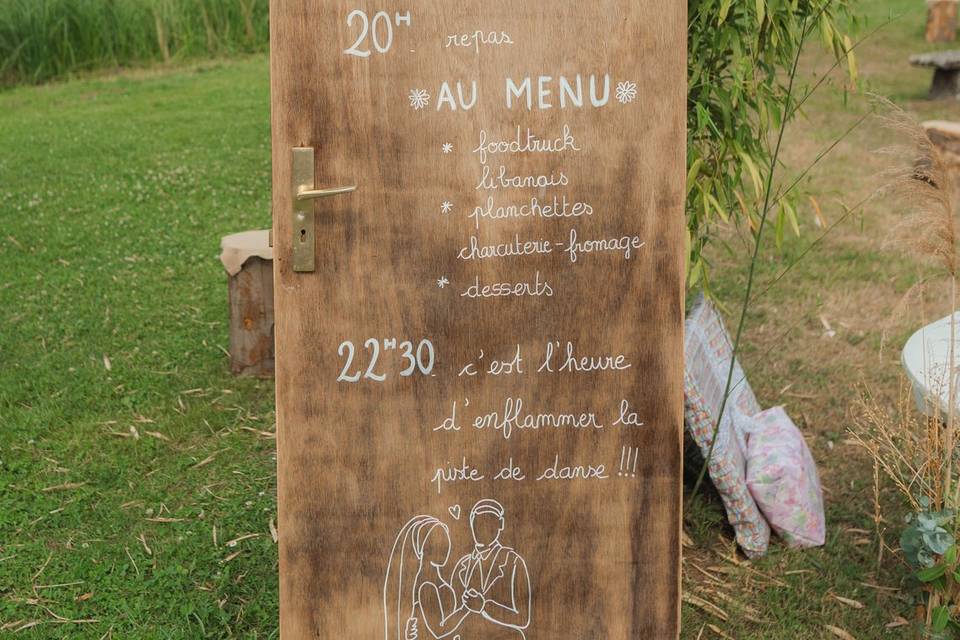 20H repas
AU MENU
* foodtruck
libanais
* planchettes
charcuterie-fromage
* desserts
22H30 c'est l'heure
d'enflammer la
piste de danse !!!